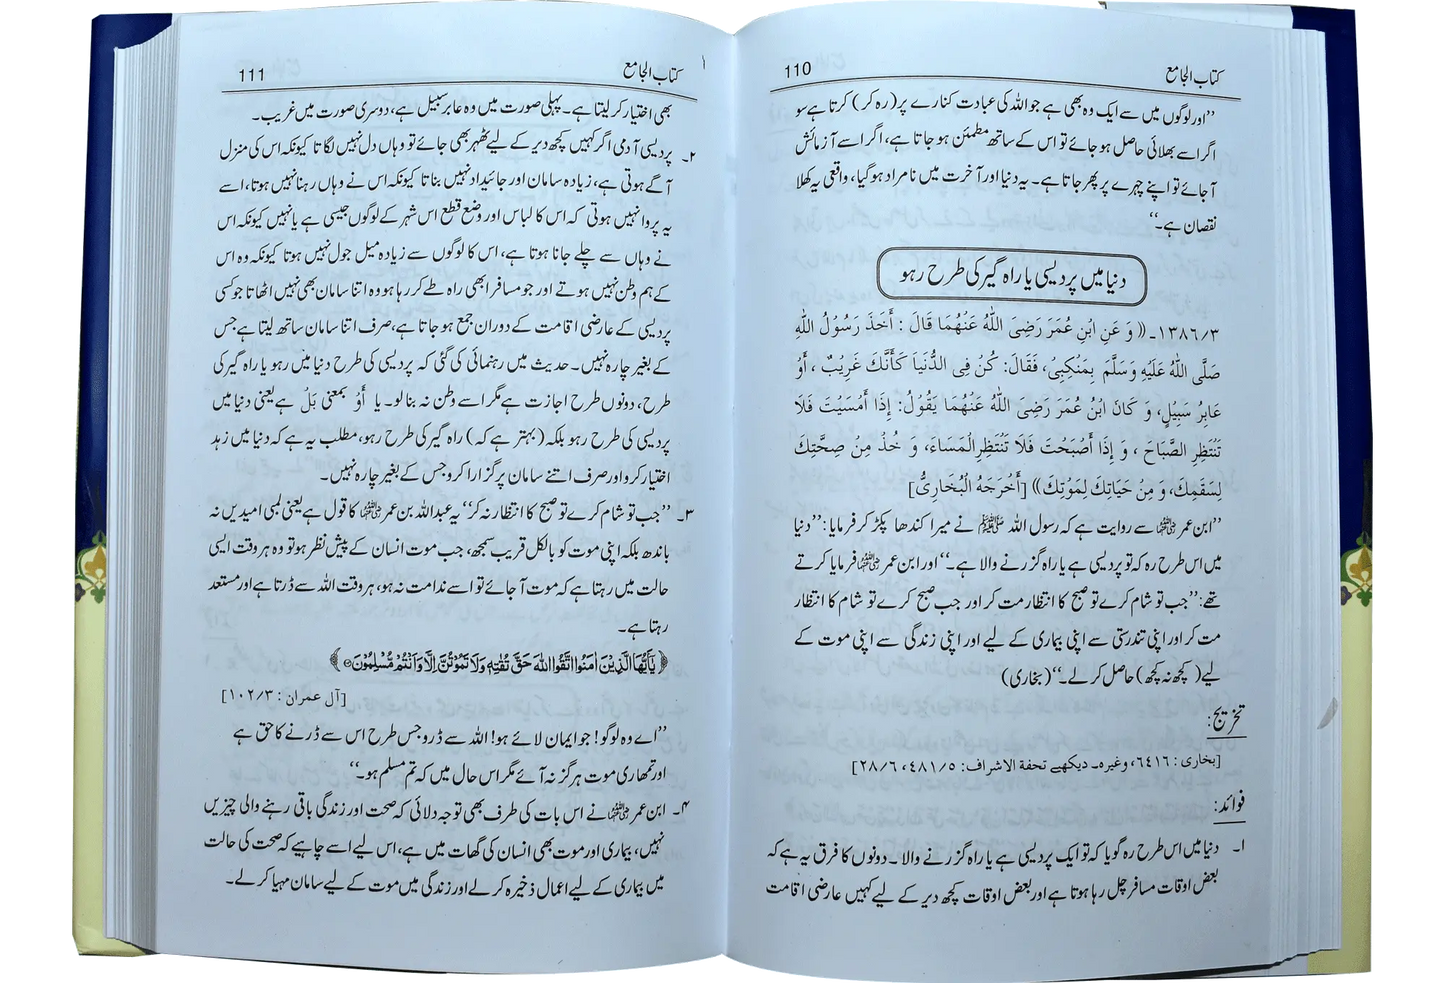 110
کتاب الجامع
’’اور لوگوں میں سے ایک وہ بھی ہے جو اللہ کی عبادت کنارے پر (رہ کر) کرتا ہے سو
اگر اسے بھلائی حاصل ہو جائے تو اس کے ساتھ مطمئن ہو جاتا ہے، اگر اسے آزمائش
آ جائے تو اپنے چہرے پر پھر جاتا ہے۔ یہ دنیا اور آخرت میں نامراد ہو گیا، واقعی یہ کھلا
نقصان ہے۔‘‘
دنیا میں پردیسی یا راہ گیر کی طرح رہو
۱۳۸۶/۳۔ (( وَ عَنِ ابْنِ عُمَرَ رَضِیَ اللّٰہُ عَنْہُمَا قَالَ : أَخَذَ رَسُوْلُ اللّٰہِ
صَلَّی اللّٰہُ عَلَیْہِ وَسَلَّمَ بِمَنْکِبِیْ، فَقَالَ: کُنْ فِی الدُّنْیَا کَأَنَّکَ غَرِیْبٌ ، أَوْ
عَابِرُ سَبِیْلٍ، وَ کَانَ ابْنُ عُمَرَ رَضِیَ اللّٰہُ عَنْہُمَا یَقُوْلُ: إِذَا أَمْسَیْتَ فَلَا
تَنْتَظِرِ الصَّبَاحَ ، وَ إِذَا أَصْبَحْتَ فَلَا تَنْتَظِرِ الْمَسَاءَ، وَ خُذْ مِنْ صِحَّتِکَ
لِسَقَمِکَ، وَ مِنْ حَیَاتِکَ لِمَوْتِکَ)) [أَخْرَجَہُ الْبُخَارِیُّ]
’’ابن عمر رضی اللہ عنہما سے روایت ہے کہ رسول اللہ ﷺ نے میرا کندھا پکڑ کر فرمایا: ’’دنیا
میں اس طرح رہ کہ تو پردیسی ہے یا راہ گزرنے والا ہے۔‘‘ اور ابن عمر رضی اللہ عنہما فرمایا کرتے
تھے: ’’جب تو شام کرے تو صبح کا انتظار مت کر اور جب صبح کرے تو شام کا انتظار
مت کر اور اپنی تندرستی سے اپنی بیماری کے لیے اور اپنی زندگی سے اپنی موت کے
لیے (کچھ نہ کچھ) حاصل کر لے۔‘‘ (بخاری)
تخریج:
[بخاری : ۶۴۱۶، وغیرہ۔ دیکھیے تحفة الاشراف: ۴۸۱/۵، ۲۸/۶]
فوائد:
۱۔ دنیا میں اس طرح رہ گویا کہ تو ایک پردیسی ہے یا راہ گزرنے والا۔ دونوں کا فرق یہ ہے کہ
بعض اوقات مسافر چل رہا ہوتا ہے اور بعض اوقات کچھ دیر کے لیے کہیں عارضی اقامت
111
کتاب الجامع
بھی اختیار کر لیتا ہے۔ پہلی صورت میں وہ عابر سبیل ہے، دوسری صورت میں غریب۔
۲۔ پردیسی آدمی اگر کہیں کچھ دیر کے لیے ٹھہر بھی جائے تو وہاں دل نہیں لگاتا کیونکہ اس کی منزل
آگے ہوتی ہے، زیادہ سامان اور جائیداد نہیں بناتا کیونکہ اس نے وہاں رہنا نہیں ہوتا، اسے
یہ پروا نہیں ہوتی کہ اس کا لباس اور وضع قطع اس شہر کے لوگوں جیسی ہے یا نہیں کیونکہ اس
نے وہاں سے چلے جانا ہوتا ہے، اس کا لوگوں سے زیادہ میل جول نہیں ہوتا کیونکہ وہ اس
کے ہم وطن نہیں ہوتے اور جو مسافر ابھی راہ طے کر رہا ہو وہ اتنا سامان بھی نہیں اٹھاتا جو کسی
پردیسی کے عارضی اقامت کے دوران جمع ہو جاتا ہے، صرف اتنا سامان ساتھ لیتا ہے جس
کے بغیر چارہ نہیں۔ حدیث میں رہنمائی کی گئی کہ پردیسی کی طرح دنیا میں رہو یا راہ گیر کی
طرح، دونوں طرح اجازت ہے مگر اسے وطن نہ بنا لو۔ یا أَوْ بمعنی بَلْ ہے یعنی دنیا میں
پردیسی کی طرح رہو بلکہ (بہتر ہے کہ) راہ گیر کی طرح رہو، مطلب یہ ہے کہ دنیا میں زہد
اختیار کرو اور صرف اتنے سامان پر گزارا کرو جس کے بغیر چارہ نہیں۔
۳۔ ’’جب تو شام کرے تو صبح کا انتظار نہ کر‘‘ یہ عبد اللہ بن عمر رضی اللہ عنہما کا قول ہے یعنی لمبی امیدیں نہ
باندھ بلکہ اپنی موت کو بالکل قریب سمجھ، جب موت انسان کے پیش نظر ہو تو وہ ہر وقت ایسی
حالت میں رہتا ہے کہ موت آ جائے تو اسے ندامت نہ ہو، ہر وقت اللہ سے ڈرتا ہے اور مستعد
رہتا ہے۔
﴿ یٰۤاَیُّهَا الَّذِیْنَ اٰمَنُوا اتَّقُوا اللّٰهَ حَقَّ تُقٰتِهٖ وَلَا تَمُوْتُنَّ اِلَّا وَاَنْتُمْ مُّسْلِمُوْنَ ﴾
[آل عمران : ۱۰۲/۳]
’’اے وہ لوگو! جو ایمان لائے ہو! اللہ سے ڈرو جس طرح اس سے ڈرنے کا حق ہے
اور تمھاری موت ہرگز نہ آئے مگر اس حال میں کہ تم مسلم ہو۔‘‘
۴۔ ابن عمر رضی اللہ عنہما نے اس بات کی طرف بھی توجہ دلائی کہ صحت اور زندگی باقی رہنے والی چیزیں
نہیں، بیماری اور موت بھی انسان کی گھات میں ہے، اس لیے اسے چاہیے کہ صحت کی حالت
میں بیماری کے لیے اعمال ذخیرہ کر لے اور زندگی میں موت کے لیے سامان مہیا کر لے۔